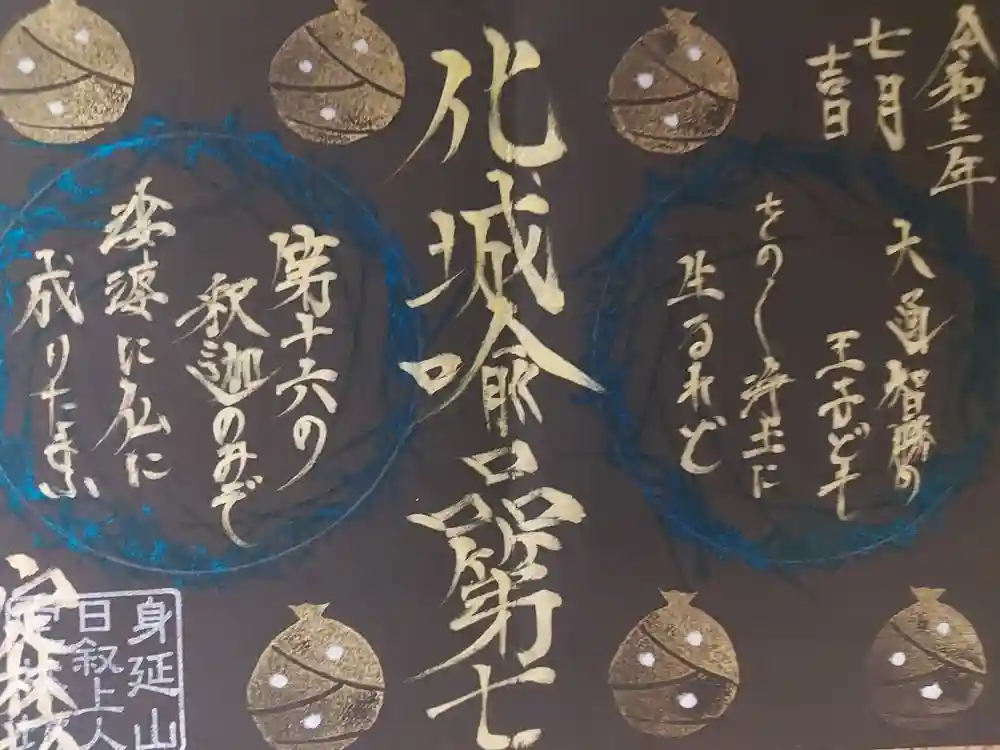 令和三年
七月
吉日
大通智勝の
王子ども
をのく浄土に
生るれど
化城喩品第七
第十六の
釈迦のみぞ
娑婆に仏に
成りたまふ
身延山
日叙上人
定林坊